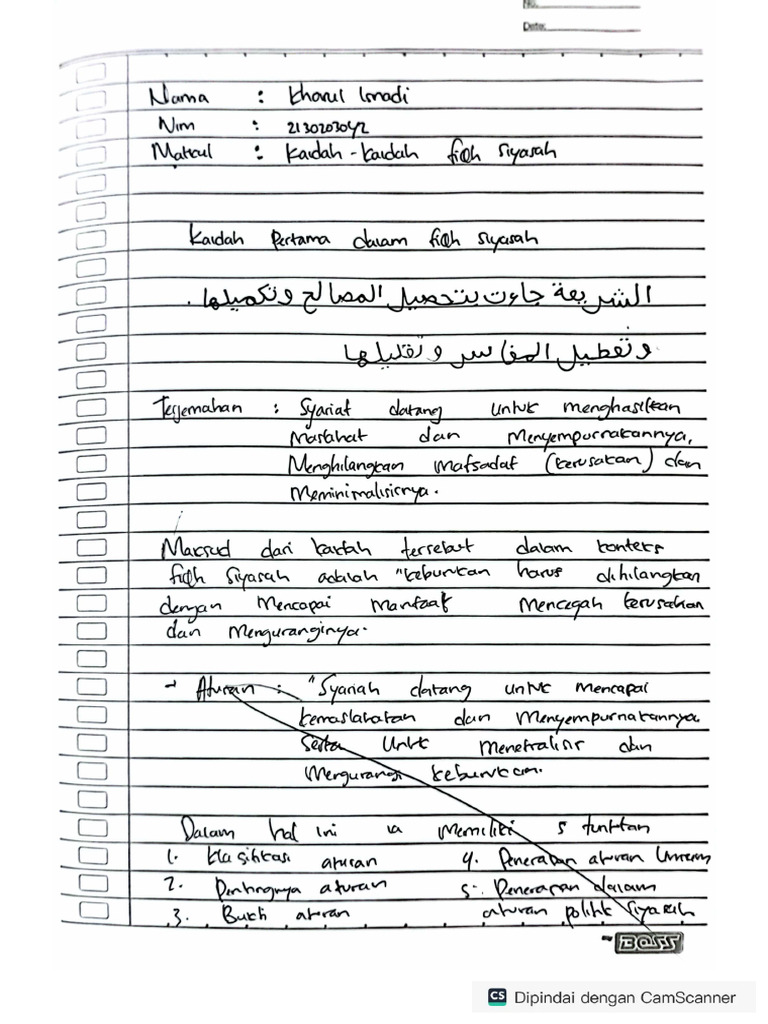 No.
Date:
Nama : Khairul Imadi
Nim : 2130203042
Matkul : Kaidah-kaidah fiqh siyasah
Kaidah Pertama dalam fiqh siyasah
الشريعة جاءت بتحصيل المصالح وتكميلها .
وتعطيل المفاسد وتقليلها
Terjemahan : Syariat datang untuk menghasilkan
Maslahat dan Menyempurnakannya,
Menghilangkan mafsadat (kerusakan) dan
Meminimalisirnya.
Maksud dari kaidah tersebut dalam konteks
fiqh siyasah adalah "keburukan harus dihilangkan
dengan Mencapai Manfaat Mencegah kerusakan
dan Menguranginya.
→ Aturan : "Syariah datang untuk mencapai
kemaslahatan dan Menyempurnakannya
Serta Untuk menetralisir dan
Mengurangi keburukan.
Dalam hal ini ia Memiliki 5 tuntutan
1. Klasifikasi aturan 4. Penerapan aturan Umum
2. Pentingnya aturan 5. Penerapan dalam
3. Bukti aturan aturan politik Siyasah
BOSS
CS Dipindai dengan CamScanner